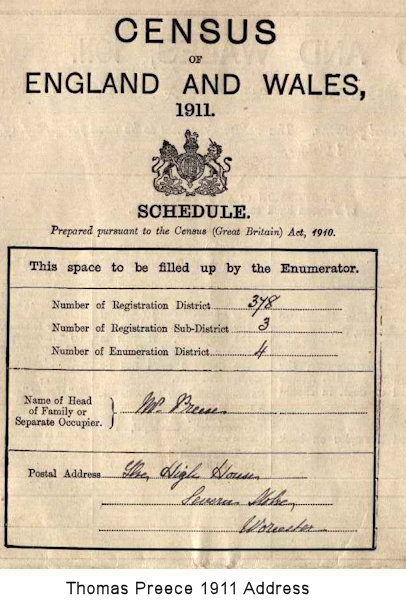 CENSUS
OF
ENGLAND AND WALES,
1911.
SCHEDULE.
Prepared pursuant to the Census (Great Britain) Act, 1910.
This space to be filled up by the Enumerator.
Number of Registration District 378
Number of Registration Sub-District 3
Number of Enumeration District 4
Name of Head
of Family or
Separate Occupier. } Mr. Preece
Postal Address The High House
Severn Stoke
Worcester
Thomas Preece 1911 Address